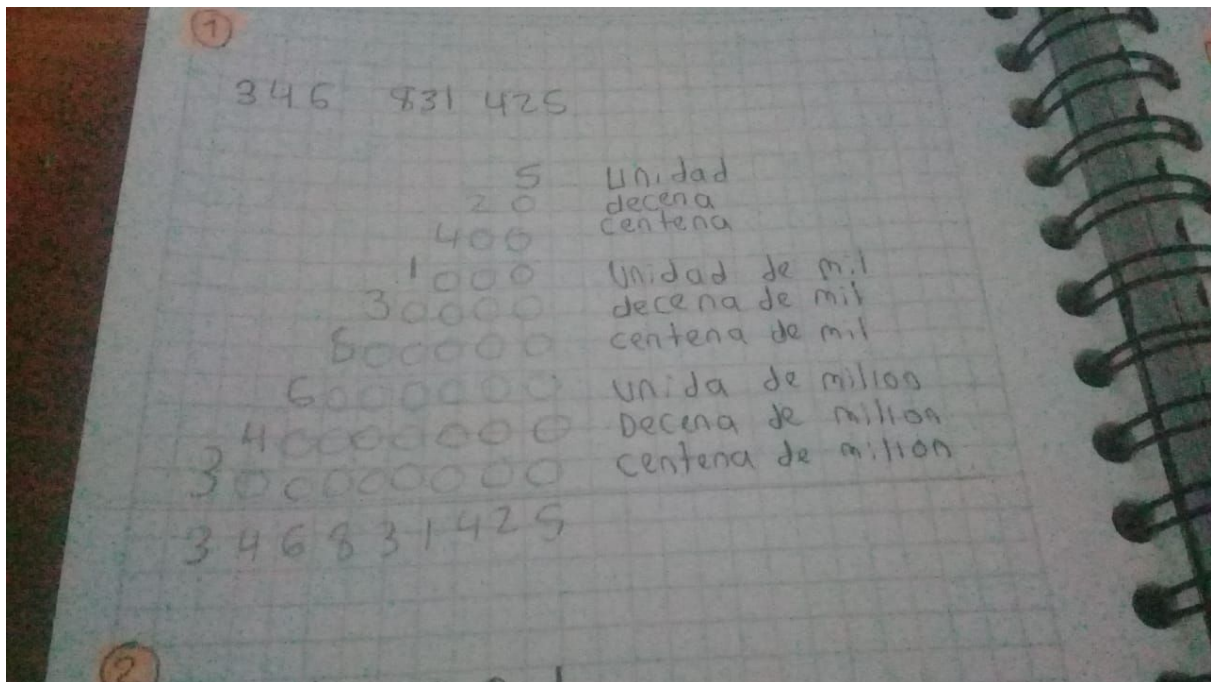 1
346 831 425
5 unidad
20 decena
400 centena
1000 Unidad de mil
30000 decena de mil
800000 centena de mil
6000000 unida de millon
40000000 Decena de millon
300000000 centena de millon
346831425
2